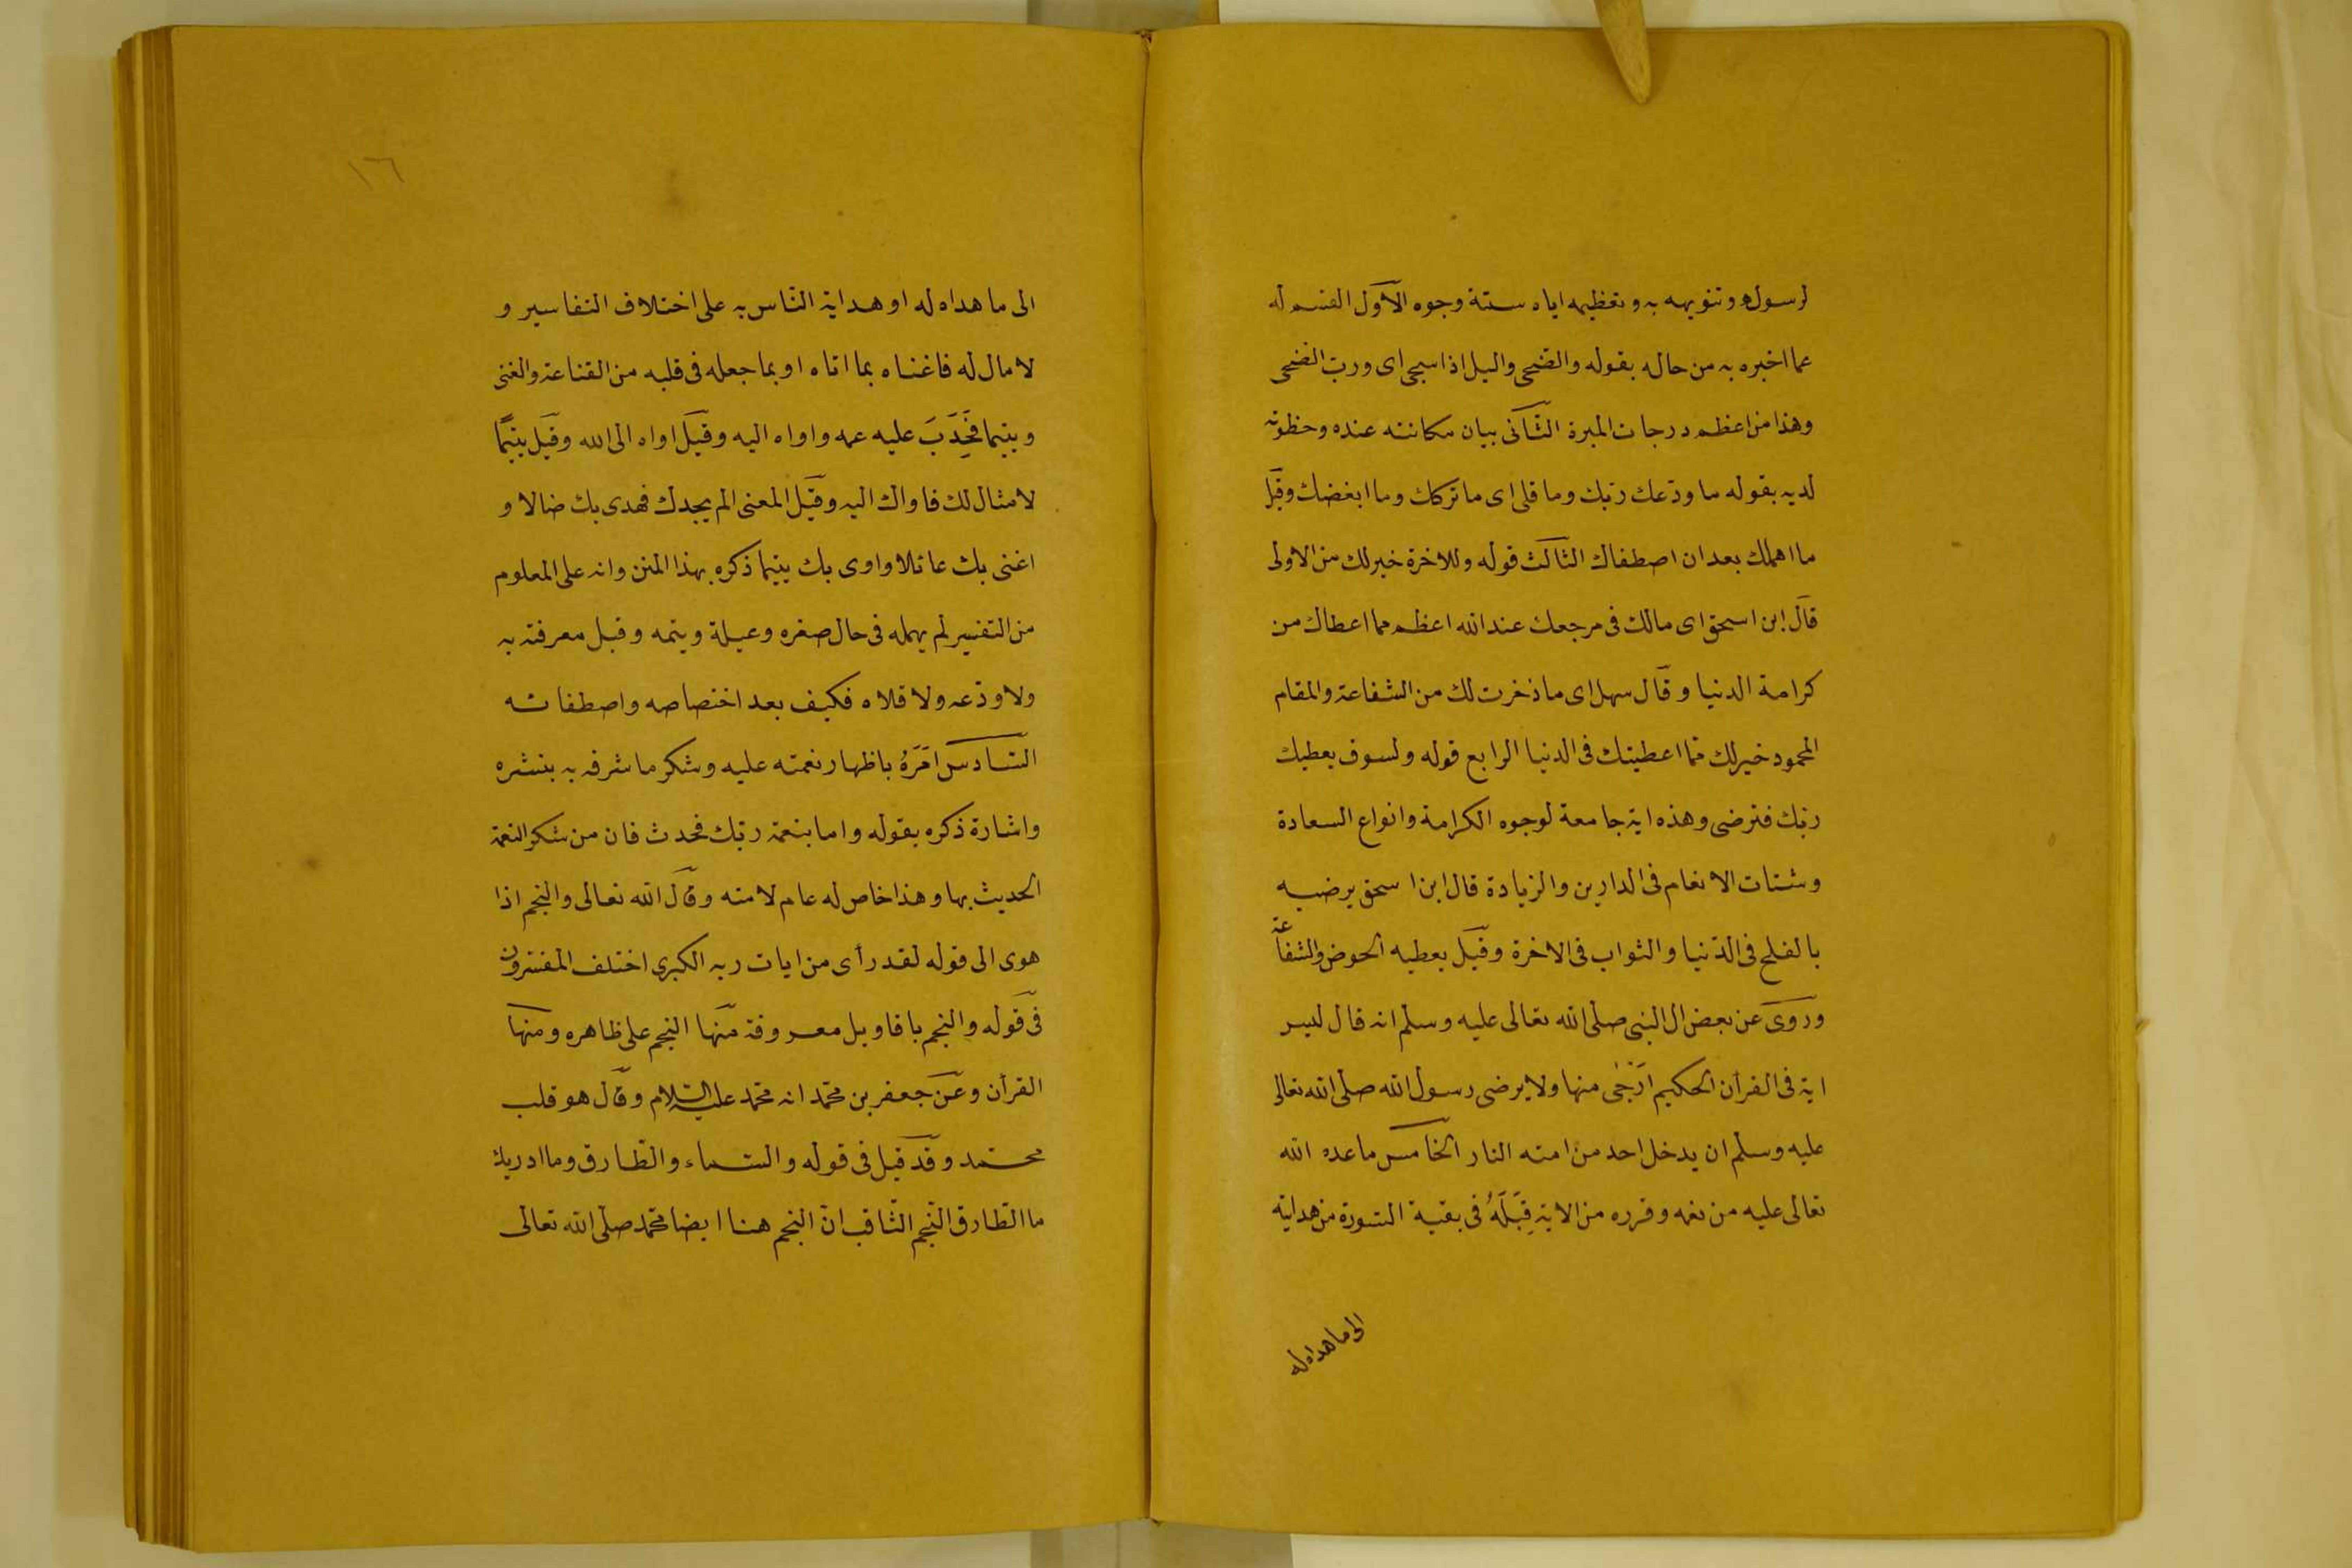 لرسوله وتنويهه به وتعظيمه اياه ستة وجوه الأول القسم له
عما اخبره به من حاله بقوله والضحى والليل اذا سجى اى ورب الضحى
وهذا من اعظم درجات المبرة الثانى بيان مكانته عنده وحظوته
لديه بقوله ما ودعك ربك وما قلى اى ما تركك وما ابغضك وقيل
ما اهملك بعد ان اصطفاك الثالث قوله وللاخرة خير لك من الاولى
قال ابن اسحق اى مالك فى مرجعك عند الله اعظم مما اعطاك من
كرامة الدنيا وقال سهل اى ما ذخرت لك من الشفاعة والمقام
المحمود خير لك مما اعطيتك فى الدنيا الرابع قوله ولسوف يعطيك
ربك فترضى وهذه اية جامعة لوجوه الكرامة وانواع السعادة
وشتات الانعام فى الدارين والزيادة قال ابن اسحق يرضيه
بالفلج فى الدنيا والثواب فى الاخرة وقيل يعطيه الحوض والشفاعة
وروى عن بعض ال النبى صلى الله تعالى عليه وسلم انه قال ليس
اية فى القرأن الحكيم ارجى منها ولا يرضى رسول الله صلى الله تعالى
عليه وسلم ان يدخل احد من امته النار الخامس ما عده الله
تعالى عليه من نعمه وقرره من الاية قبله فى بقية السورة من هدايته
الى ما هداه له
١٦٦
الى ما هداه له او هداية الناس به على اختلاف التفاسير و
لا مال له فاغناه بما اتاه او بما جعله فى قلبه من القناعة والغنى
ويتيما فحدب عليه عمه واواه اليه وقيل اواه الى الله وقيل يتيما
لا مثال لك فاواك اليه وقيل المعنى الم يجدك فهدى بك ضالا و
اغنى بك عائلا واوى بك يتيما ذكره بهذا المنن وانه على المعلوم
من التفسير لم يهمله فى حال صغره وعيلة ويتمه وقبل معرفته به
ولا ودعه ولا قلاه فكيف بعد اختصاصه واصطفائه
السادس امره باظهار نعمته عليه وشكر ما شرفه به بنشره
واشارة ذكره بقوله واما بنعمة ربك فحدث فان من شكر النعمة
الحديث بها وهذا خاص له عام لامته وقال الله تعالى والنجم اذا
هوى الى قوله لقد رأى من ايات ربه الكبرى اختلف المفسرون
فى قوله والنجم باقاويل معروفة منها النجم على ظاهره ومنها
القرأن وعن جعفر بن محمد انه محمد عليه السلام وقال هو قلب
محمد وقد قيل فى قوله والسماء والطارق وما ادريك
ما الطارق النجم الثاقب ان النجم هنا ايضا محمد صلى الله تعالى